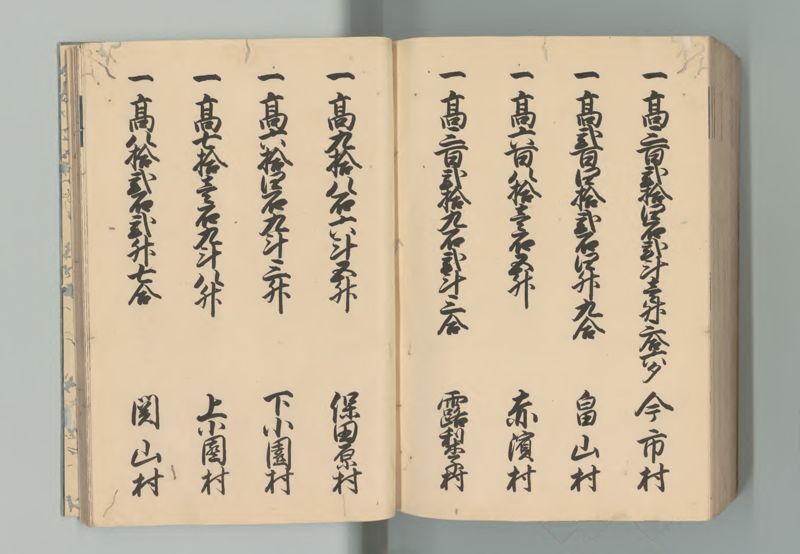 一高三百弐拾四石弐斗壱升三合六夕 今市村
一高弐百四拾弐石四升九合 畠山村
一高六百八拾壱石五升 赤濱村
一高三百弐拾九石弐斗三合 露梨子村
一高九拾八石六斗五升 保田原村
一高六拾四石九斗三升 下小園村
一高七拾壱石九斗八升 上小園村
一高八拾弐石弐升七合 関山村